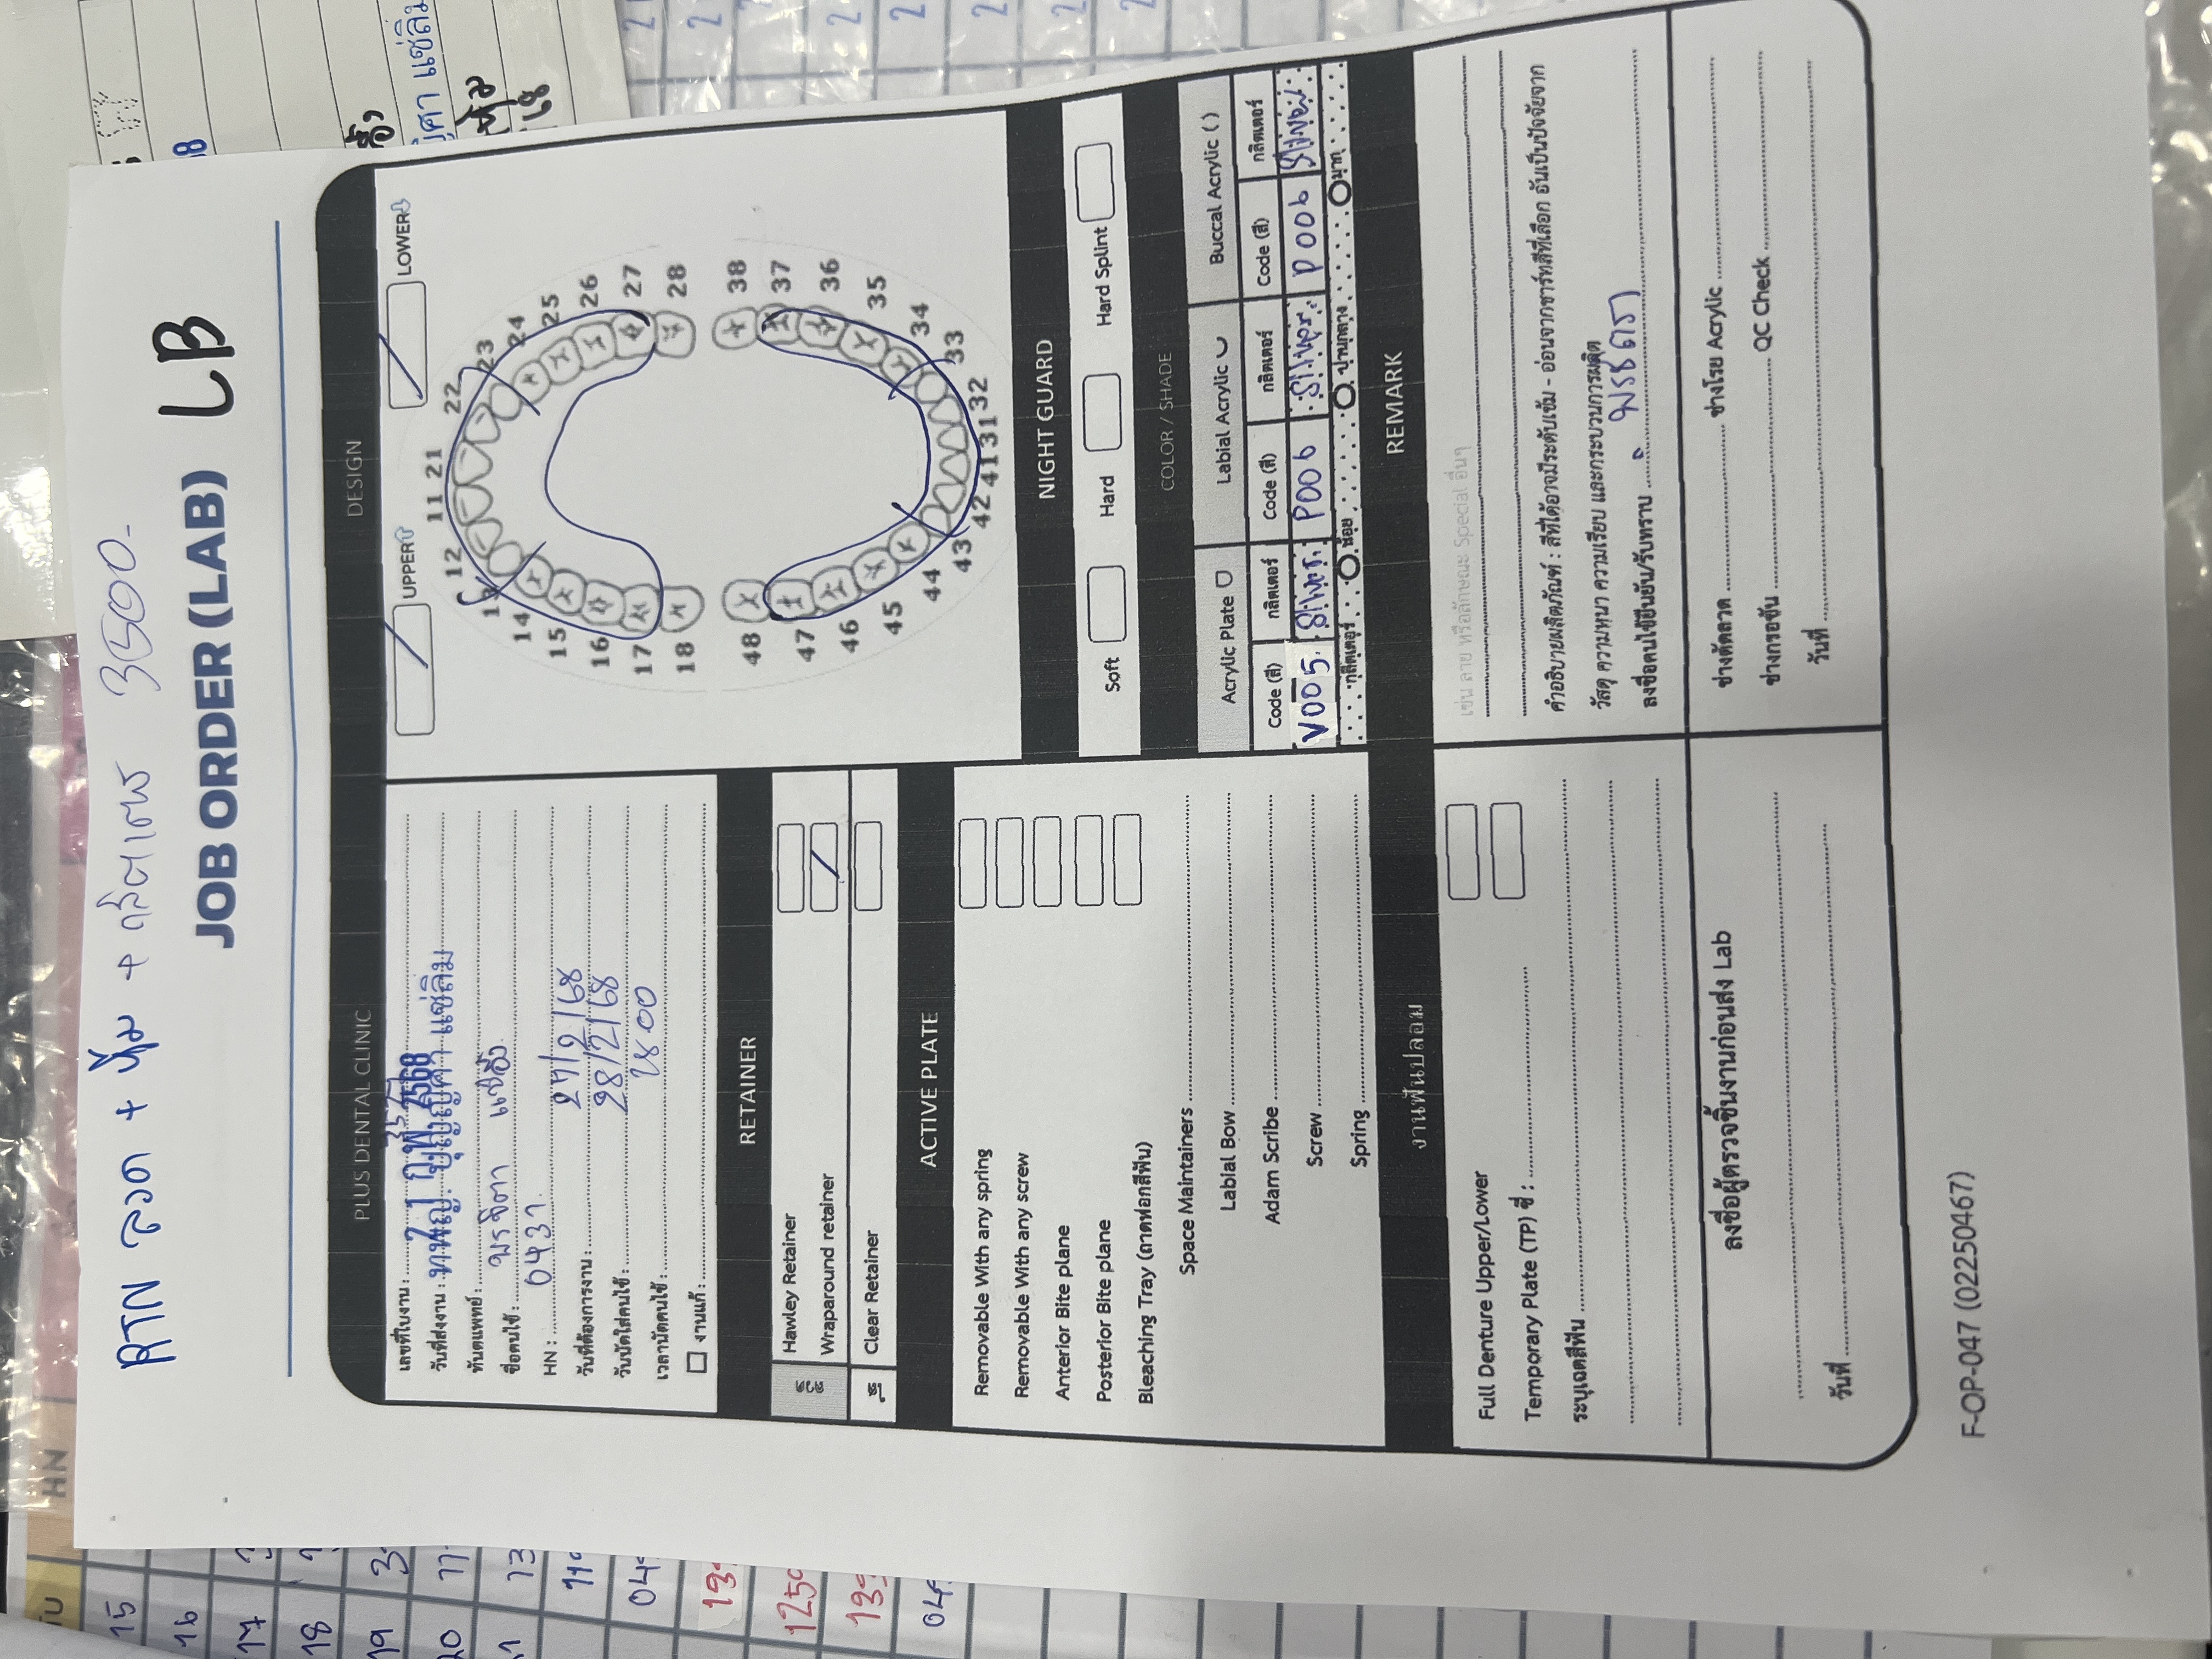 RTN ลวด + หุ้ม + กลิตเตอร์ 3500-
JOB ORDER (LAB) LB
PLUS DENTAL CLINIC
เลขที่ใบงาน : 357
วันที่ส่งงาน : 21 ก.พ. 2568
ทันตแพทย์ : ทพญ. บุญญิศา แซ่ลิม
ชื่อคนไข้ : พรชิตา แซ่อึ้ง
HN : 0437
วันที่ต้องการงาน : 27/2/68
วันนัดใส่คนไข้ : 28/2/68
เวลานัดคนไข้ : 18 00
งานแก้ :
RETAINER
Hawley Retainer
Wrapparound retainer
Clear Retainer
ACTIVE PLATE
Removable With any spring
Removable With any screw
Anterior Bite plane
Posterior Bite plane
Bleaching Tray (ถาดฟอกสีฟัน)
Space Maintainers
Labial Bow
Adam Scribe
Screw
Spring
งานฟันปลอม
Full Denture Upper/Lower
Temporary Plate (TP) ซี่ :
ระบุเฉดสีฟัน
ลงชื่อผู้ตรวจชิ้นงานก่อนส่ง Lab
วันที่
DESIGN
UPPER LOWER
11 21
12 22
13 23
14 24
15 25
16 26
17 27
18 28
48 38
47 37
46 36
45 35
44 34
43 33
42 41 31 32
NIGHT GUARD
Soft Hard Hard Splint
COLOR / SHADE
Acrylic Plate Labial Acrylic Buccal Acrylic ( )
Code (สี) กลิตเตอร์ Code (สี) กลิตเตอร์ Code (สี) กลิตเตอร์
V005 Silver P006 Silver P006 Silver
กลิตเตอร์ น้อย ปานกลาง มาก
REMARK
เช่น ลาย หรือลักษณะ Special อื่นๆ
คำอธิบายผลิตภัณฑ์ : สีที่ได้อาจมีระดับเข้ม - อ่อนจากชาร์ทสีที่เลือก อันเป็นปัจจัยจาก
วัสดุ ความหนา ความเรียบ และกระบวนการผลิต
ลงชื่อคนไข้ยืนยัน/รับทราบ
ช่างดัดลวด ช่างโรย Acrylic
ช่างกรอขัน QC Check
วันที่
F-OP-047 (02250467)
HN
15
16
17
18
19
20